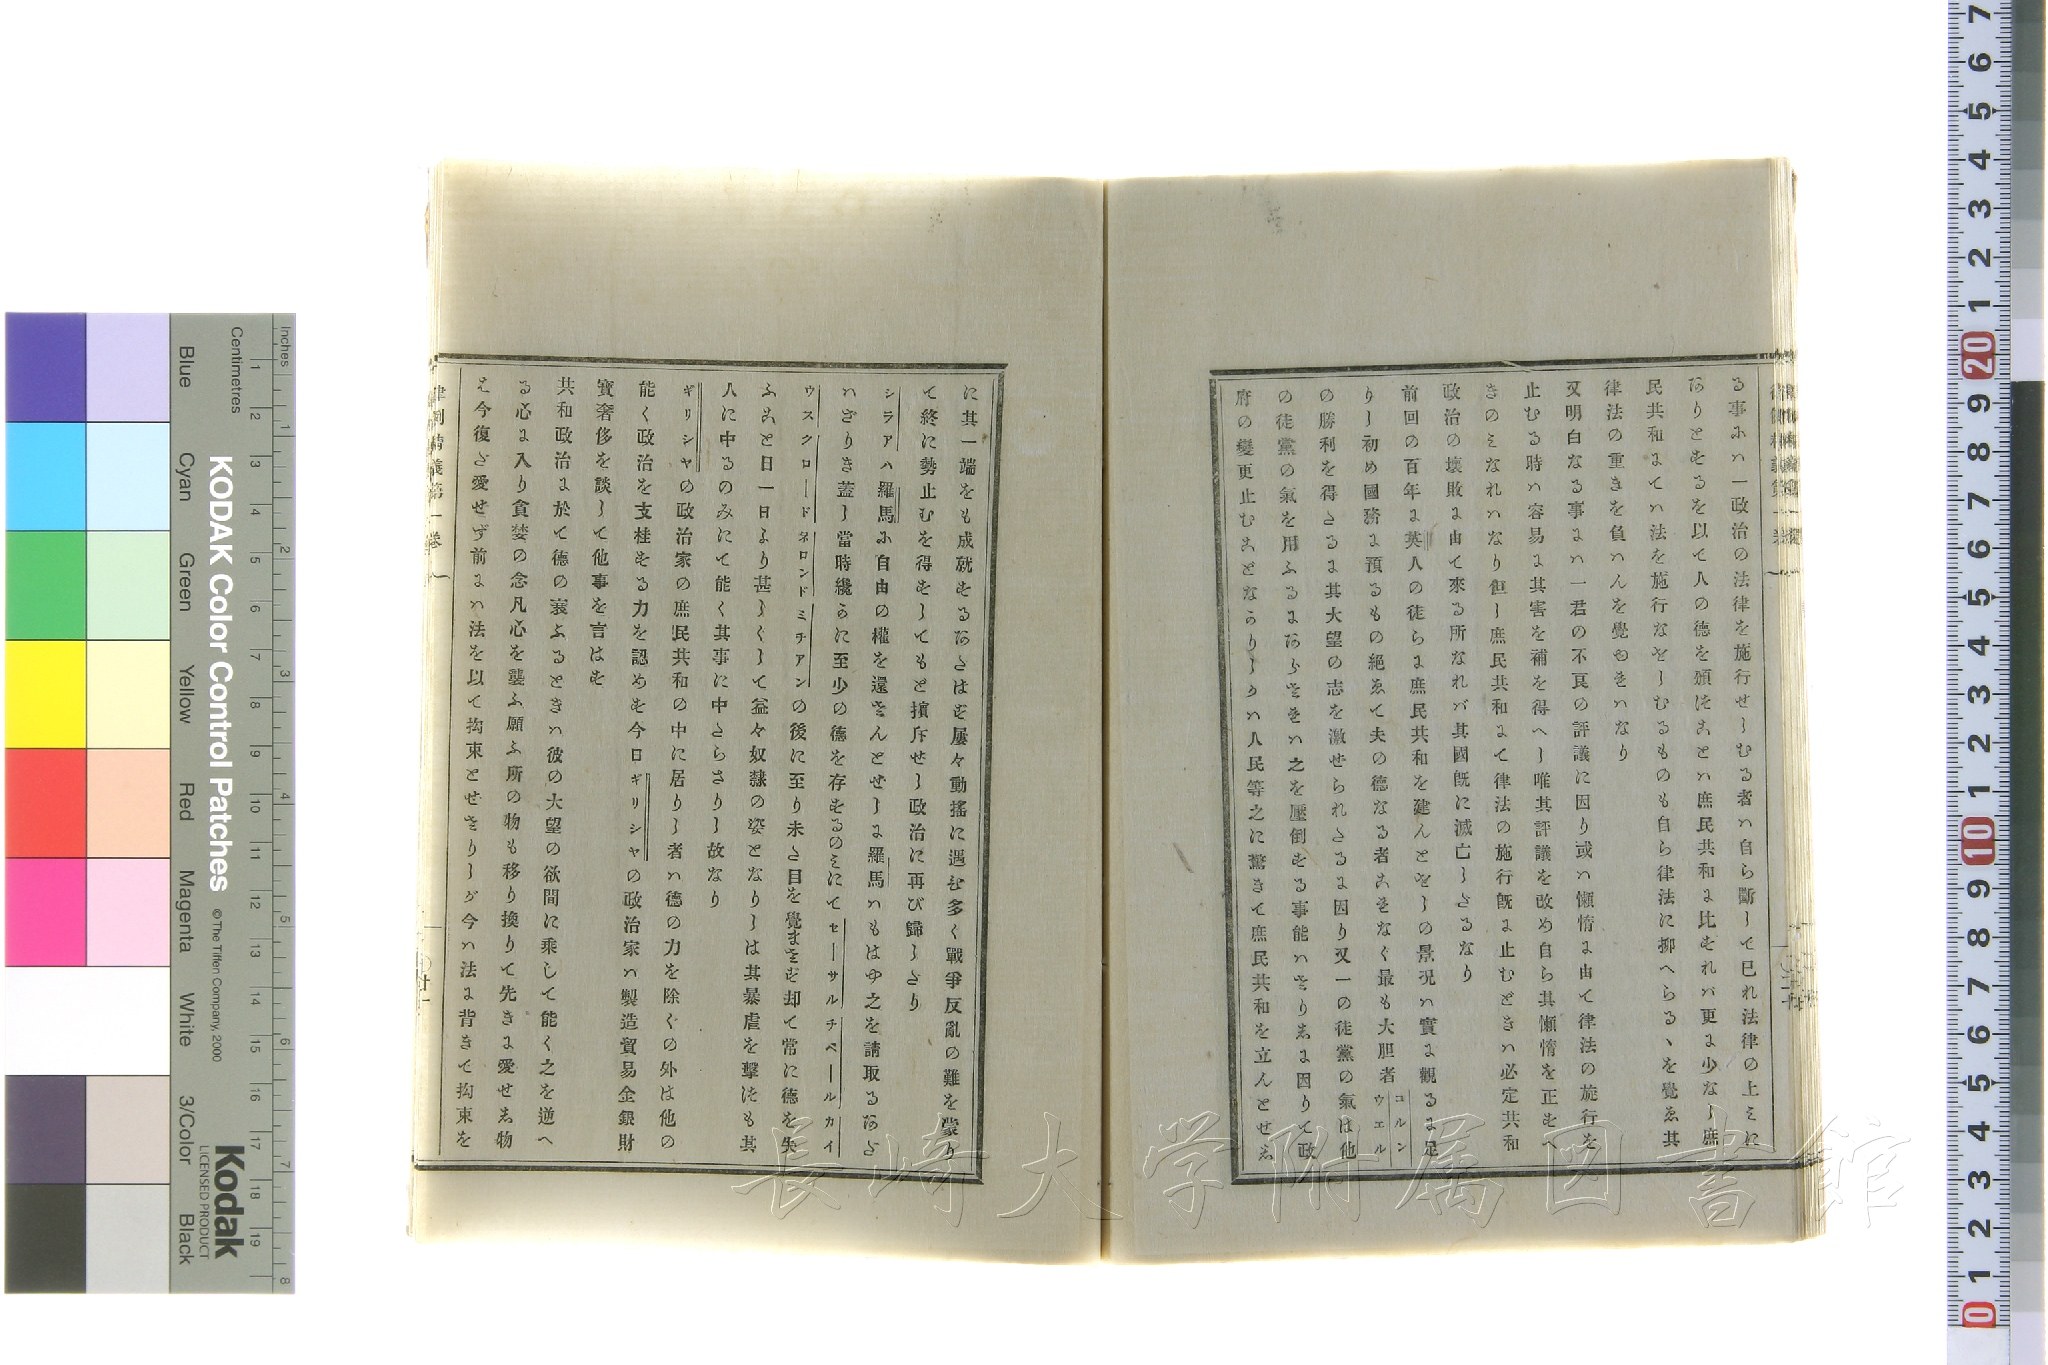 る事ふハ一政治の法律を施行せしむる者ハ自ら斷して已れ法律の上ミに
ありとするを以て人の德を頼むことハ庶民共和ま比すれバ更ま少なし庶
民共和まてハ法を施行なさしむるものも自ら律法に抑へらるゝを覺ゑ其
律法の重きを負ハんを覺ゆきハなり
又明白なる事まハ一君の不良の評議に因り或ハ懶惰ま由て律法の施行を
止むる時ハ容易ま其害を補を得へし唯其評議を改め自ら其懶惰を正すへ
きのミなれハなり但し庶民共和まて律法の施行旣ま止むときハ必定共和
政治の壊敗ま由て來る所なれバ其國旣に滅亡しさるなり
前回の百年ま英人の徒らま庶民共和を建んとせしの景况ハ實ま觀るま足
りし初め國務ま預るもの絶ゑて夫の德なる者こきなく最も大胆者コルンウエル
の勝利を得さるま其大望の志を激せられさるま因り又一の徒黨の氣は他
の徒黨の氣を用ふるまあらさきハ之を壓倒する事能ハさりゑま因りて政
府の變更止むことなかりしかハ人民等之に驚きて庶民共和を立んとせゑ
に其一端をも成就するあさはす屢々動搖に遇む多く戰爭反亂の難を蒙り
て終に勢止むを得すしてもと擯斥せし政治に再び歸しさり
シラアハ羅馬ふ自由の權を還さんとせしま羅馬ハもはや之を請取るあさ
ハざりき蓋し當時纔かに至少の德を存するのミにてセーサルチベールカイ
ウスクロードネロンドミチアンの後に至り未さ目を覺まさす却て常に德を失
ふこと日一日より甚しくして益々奴隷の姿となりしは其暴虐を擊つも其
人に中るのみにて能く其事に中さらさりし故なり
ギリシヤの政治家の庶民共和の中に居りし者ハ德の力を除くの外は他の
能く政治を支柱する力を認めす今日ギリシヤの政治家ハ製造貿易金銀財
寶奢侈を談して他事を言はす
共和政治ま於て德の衰ふるときハ彼の大望の欲間に乘して能く之を逆へ
る心ま入り貪婪の念凡心を襲ふ願ふ所の物も移り換りて先きま愛せゑ物
は今復さ愛せず前まハ法を以て拘束とせさりしが今ハ法ま背きて拘束を
律例精義第一卷
廿一
KODAK Color Control Patches
© The Tiffen Company, 2000
Kodak
LICENSED PRODUCT
Inches
Centimetres
Blue
Cyan
Green
Yellow
Red
Magenta
White
3/Color
Black
長崎大学附属図書館